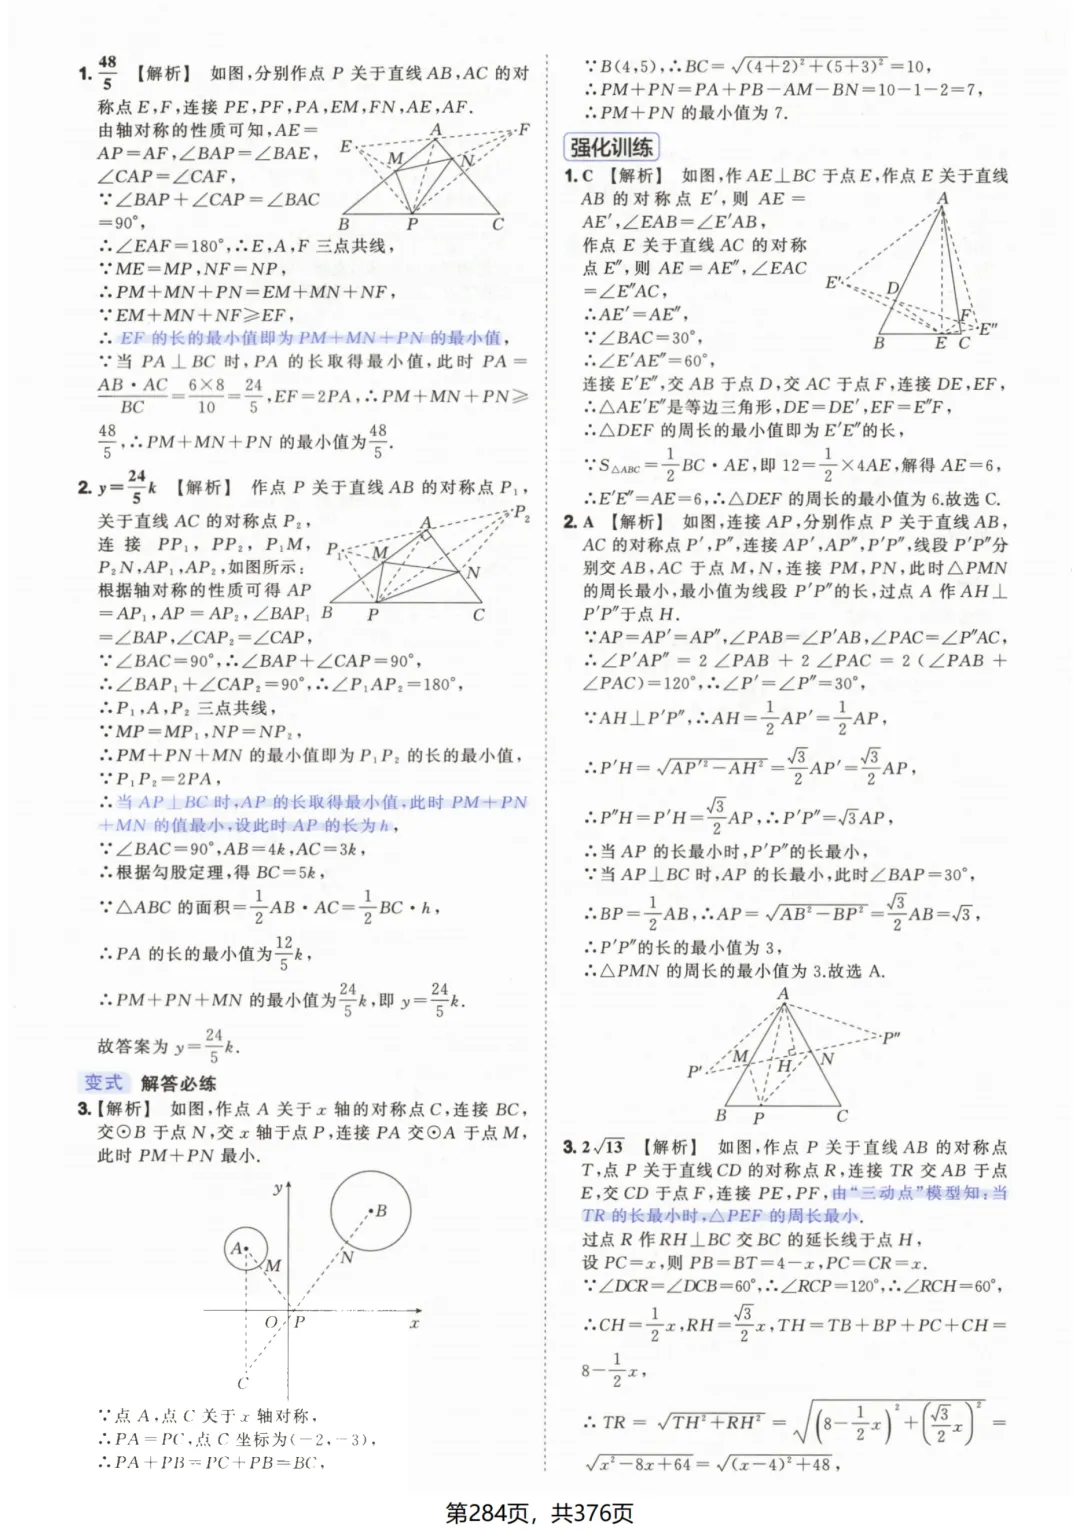 1. 48/5 【解析】 如图,分别作点 P 关于直线 AB,AC 的对
称点 E,F,连接 PE,PF,PA,EM,FN,AE,AF.
由轴对称的性质可知,AE=
AP=AF,∠BAP=∠BAE,
∠CAP=∠CAF,
∵∠BAP+∠CAP=∠BAC
=90°,
∴∠EAF=180°,∴E,A,F 三点共线,
∵ME=MP,NF=NP,
∴PM+MN+PN=EM+MN+NF,
∵EM+MN+NF≥EF,
∴ EF 的长的最小值即为 PM+MN+PN 的最小值,
∵当 PA⊥BC 时,PA 的长取得最小值,此时 PA=
AB·AC/BC=6×8/10=24/5,EF=2PA,∴PM+MN+PN≥
48/5,∴PM+MN+PN 的最小值为48/5.
A
E
F
M
N
B
P
C
2. y=24/5k 【解析】 作点 P 关于直线 AB 的对称点 P₁,
关于直线 AC 的对称点 P₂,
连接 PP₁,PP₂,P₁M,
P₂N,AP₁,AP₂,如图所示:
根据轴对称的性质可得 AP
=AP₁,AP=AP₂,∠BAP₁
=∠BAP,∠CAP₂=∠CAP,
∵∠BAC=90°,∴∠BAP+∠CAP=90°,
∴∠BAP₁+∠CAP₂=90°,∴∠P₁AP₂=180°,
∴P₁,A,P₂ 三点共线,
∵MP=MP₁,NP=NP₂,
∴PM+PN+MN 的最小值即为 P₁P₂ 的长的最小值,
∵P₁P₂=2PA,
∴当 AP⊥BC 时,AP 的长取得最小值,此时 PM+PN
+MN 的值最小,设此时 AP 的长为 h,
∵∠BAC=90°,AB=4k,AC=3k,
∴根据勾股定理,得 BC=5k,
∵△ABC 的面积=1/2AB·AC=1/2BC·h,
∴PA 的长的最小值为12/5k,
∴PM+PN+MN 的最小值为24/5k,即 y=24/5k.
故答案为 y=24/5k.
A
P₂
P₁
M
N
B
P
C
变式 解答必练
3.【解析】 如图,作点 A 关于 x 轴的对称点 C,连接 BC,
交⊙B 于点 N,交 x 轴于点 P,连接 PA 交⊙A 于点 M,
此时 PM+PN 最小.
y
B
A
M
N
O
P
x
C
∵点 A,点 C 关于 x 轴对称,
∴PA=PC,点 C 坐标为(-2,-3),
∴PA+PB=PC+PB=BC,
∵B(4,5),∴BC=√((4+2)²+(5+3)²)=10,
∴PM+PN=PA+PB-AM-BN=10-1-2=7,
∴PM+PN 的最小值为 7.
强化训练
1. C 【解析】 如图,作 AE⊥BC 于点 E,作点 E 关于直线
AB 的对称点 E′,则 AE=
AE′,∠EAB=∠E′AB,
作点 E 关于直线 AC 的对称
点 E″,则 AE=AE″,∠EAC
=∠E″AC,
∴AE′=AE″,
∵∠BAC=30°,
∴∠E′AE″=60°,
连接 E′E″,交 AB 于点 D,交 AC 于点 F,连接 DE,EF,
∴△AE′E″是等边三角形,DE=DE′,EF=E″F,
∴△DEF 的周长的最小值即为 E′E″的长,
∵S△ABC=1/2BC·AE,即 12=1/2×4AE,解得 AE=6,
∴E′E″=AE=6,∴△DEF 的周长的最小值为 6.故选 C.
A
E′
D
F
E″
B
E
C
2. A 【解析】 如图,连接 AP,分别作点 P 关于直线 AB,
AC 的对称点 P′,P″,连接 AP′,AP″,P′P″,线段 P′P″分
别交 AB,AC 于点 M,N,连接 PM,PN,此时△PMN
的周长最小,最小值为线段 P′P″的长,过点 A 作 AH⊥
P′P″于点 H.
∵AP=AP′=AP″,∠PAB=∠P′AB,∠PAC=∠P″AC,
∴∠P′AP″=2∠PAB+2∠PAC=2(∠PAB+
∠PAC)=120°,∴∠P′=∠P″=30°,
∵AH⊥P′P″,∴AH=1/2AP′=1/2AP,
∴P′H=√(AP′²-AH²)=√3/2AP′=√3/2AP,
∴P″H=P′H=√3/2AP,∴P′P″=√3AP,
∴当 AP 的长最小时,P′P″的长最小,
∵当 AP⊥BC 时,AP 的长最小,此时∠BAP=30°,
∴BP=1/2AB,∴AP=√(AB²-BP²)=√3/2AB=√3,
∴P′P″的长的最小值为 3,
∴△PMN 的周长的最小值为 3.故选 A.
A
P″
M
N
P′
H
B
P
C
3. 2√13 【解析】 如图,作点 P 关于直线 AB 的对称点
T,点 P 关于直线 CD 的对称点 R,连接 TR 交 AB 于点
E,交 CD 于点 F,连接 PE,PF,由“三动点”模型知:当
TR 的长最小时,△PEF 的周长最小.
过点 R 作 RH⊥BC 交 BC 的延长线于点 H,
设 PC=x,则 PB=BT=4-x,PC=CR=x.
∵∠DCR=∠DCB=60°,∴∠RCP=120°,∴∠RCH=60°,
∴CH=1/2x,RH=√3/2x,TH=TB+BP+PC+CH=
8-1/2x,
∴TR=√(TH²+RH²)=√((8-1/2x)²+(√3/2x)²)=
√(x²-8x+64)=√((x-4)²+48),
第284页，共376页